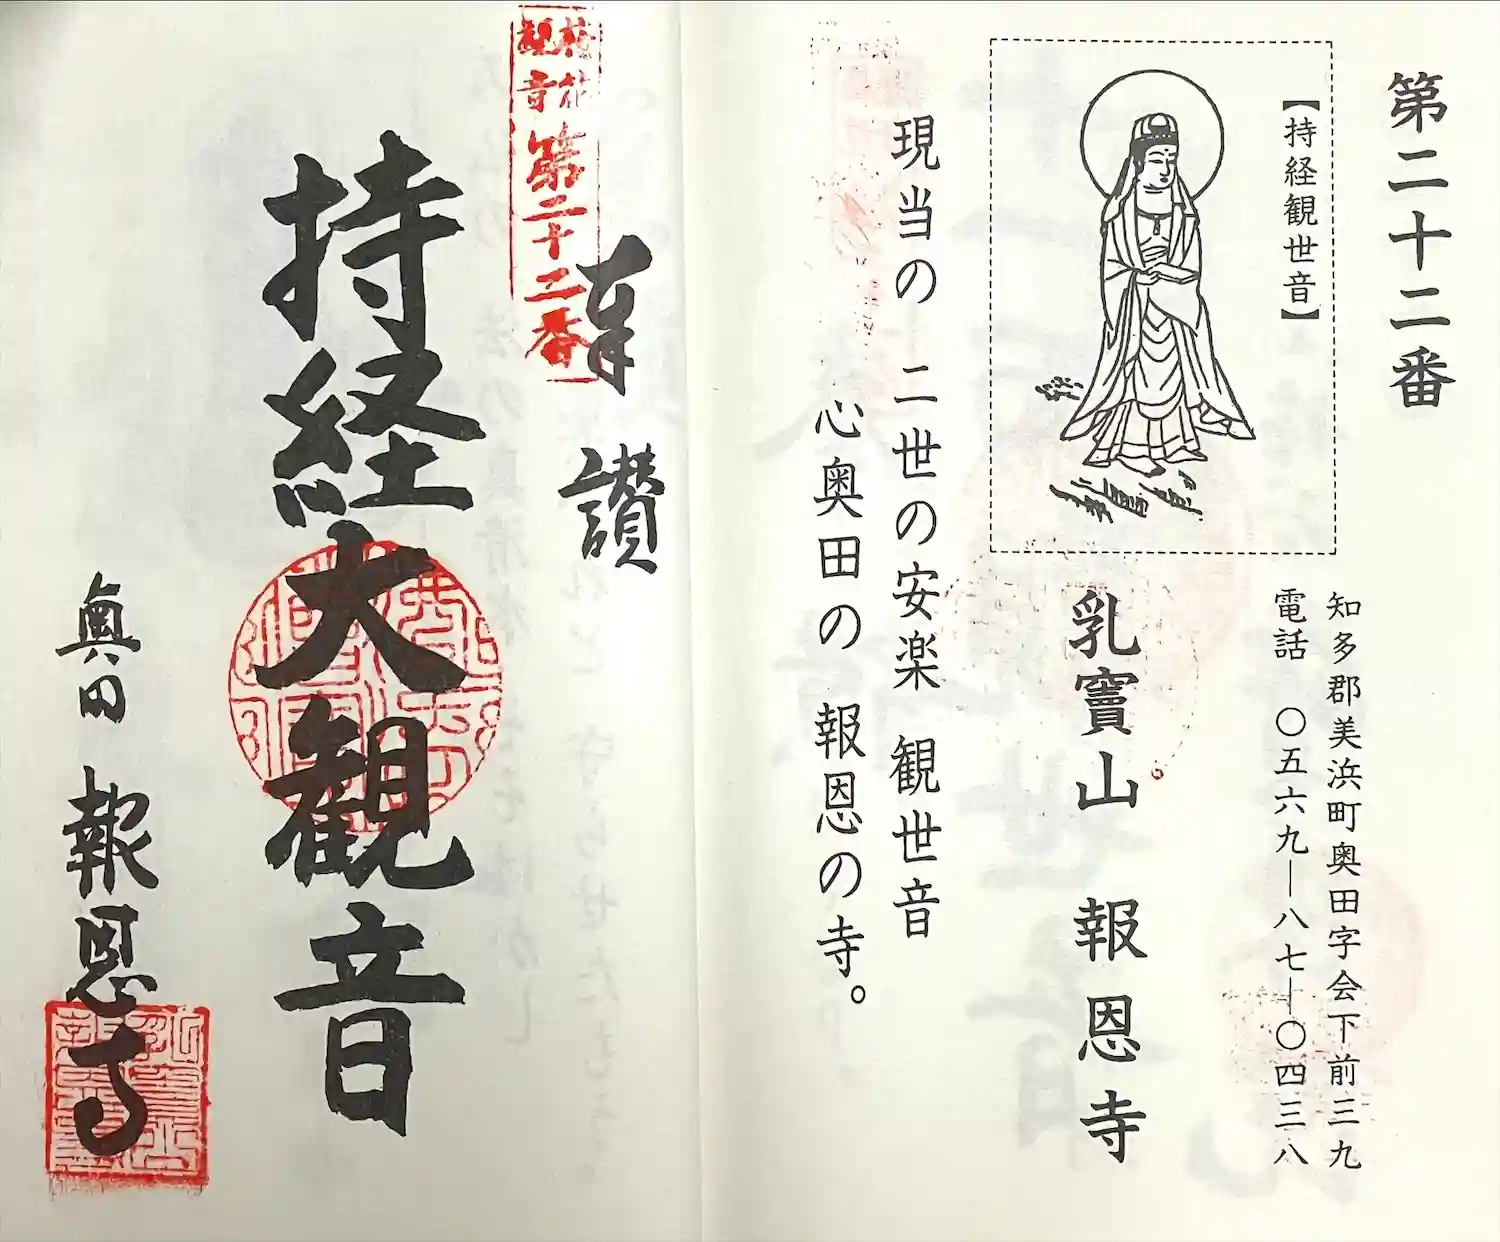 第二十二番
【持経観世音】
知多郡美浜町奥田字会下前三九
電話 〇五六九―八七―〇四三八
乳竇山 報恩寺
現当の 二世の安楽 観世音
心奥田の 報恩の寺。
奉讃
観音
第二十二番
持経大観音
奥田 報恩寺